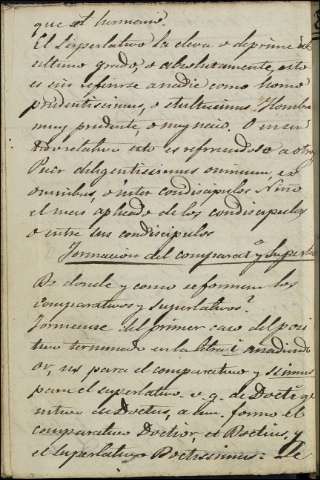 que el hermano.
El Superlativo la eleva o deprime al
ultimo grado, o absolutamente, esto
es sin referirse a nadie como homo
prudentissimus, o stultissimus Hombre
muy prudente, o muy necio. O
relative esto es refiriendolo a otro
Puer diligentissimus omnium, ex
omnibus, o inter condiscipulos Niño
el mas aplicado de los condiscipulos
o entre sus condiscipulos
Formacion del comparat.o y Superla
De donde y como se forman los
comparativos y superlativos?
Formanse del primer caso del posi
tivo terminado en la letra i añadiendo
or, us para el comparativo y ssimus
para el superlativo v. g. de Docti ge
nitivo de Doctus, a um. formo el
comparativo Doctior, et Doctius, y
el superlativo Doctissimus: De